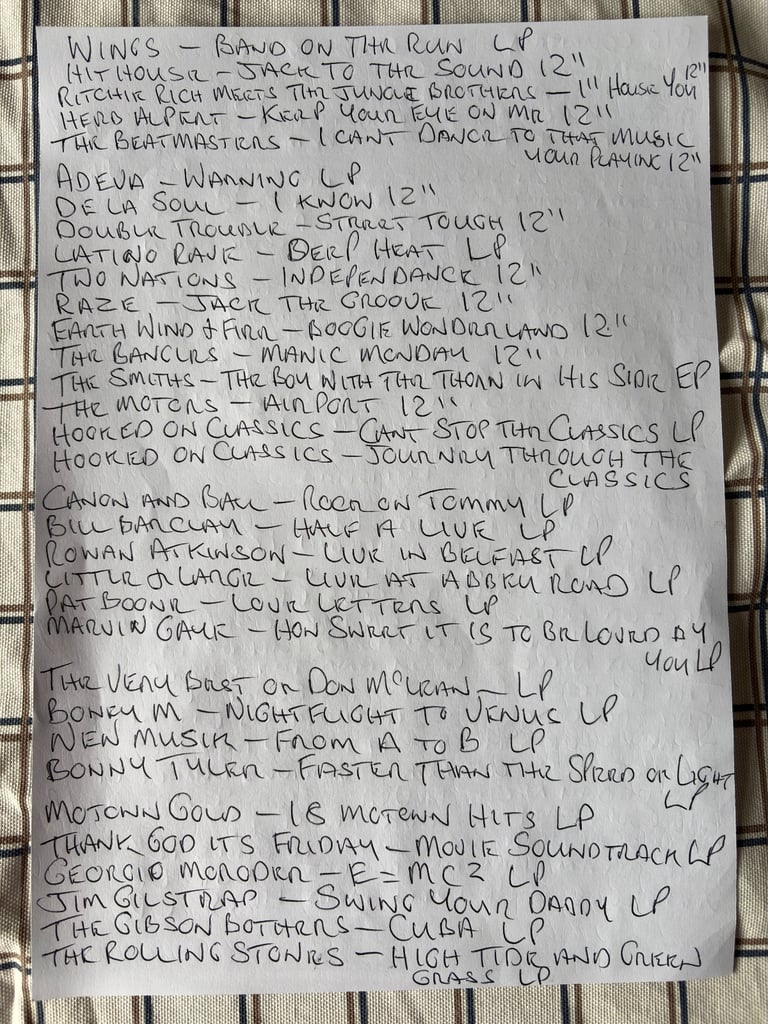 WINGS – BAND ON THE RUN LP
HITHOUSE – JACK TO THE SOUND 12"
RITCHIE RICH MEETS THE JUNGLE BROTHERS – I'LL HOUSE YOU 12"
HERB ALPERT – KEEP YOUR EYE ON ME 12"
THE BEATMASTERS – I CANT DANCE TO THAT MUSIC
YOUR PLAYING 12"
ADEVA – WARNING LP
DE LA SOUL – I KNOW 12"
DOUBLE TROUBLE – STREET TOUGH 12"
LATINO RAVE – DEEP HEAT LP
TWO NATIONS – INDEPENDANCE 12"
RAZE – JACK THE GROOVE 12"
EARTH WIND & FIRE – BOOGIE WONDERLAND 12"
THE BANGLES – MANIC MONDAY 12"
THE SMITHS – THE BOY WITH THE THORN IN HIS SIDE EP
THE MOTORS – AIRPORT 12"
HOOKED ON CLASSICS – CANT STOP THE CLASSICS LP
HOOKED ON CLASSICS – JOURNEY THROUGH THE
CLASSICS
CANON AND BALL – ROCK ON TOMMY LP
BILL BARCLAY – HALF A LIVE LP
ROWAN ATKINSON – LIVE IN BELFAST LP
LITTLE & LARGE – LIVE AT ABBEY ROAD LP
PAT BOONE – LOVE LETTERS LP
MARVIN GAYE – HOW SWEET IT IS TO BE LOVED BY
YOU LP
THE VERY BEST OF DON McLEAN – LP
BONEY M – NIGHTFLIGHT TO VENUS LP
NEW MUSIK – FROM A TO B LP
BONNY TYLER – FASTER THAN THE SPEED OF LIGHT
LP
MOTOWN GOLD – 18 MOTOWN HITS LP
THANK GOD ITS FRIDAY – MOVIE SOUNDTRACK LP
GEORGIO MORODER – E=MC2 LP
JIM GILSTRAP – SWING YOUR DADDY LP
THE GIBSON BOTHERS – CUBA LP
THE ROLLING STONES – HIGH TIDE AND GREEN
GRASS LP